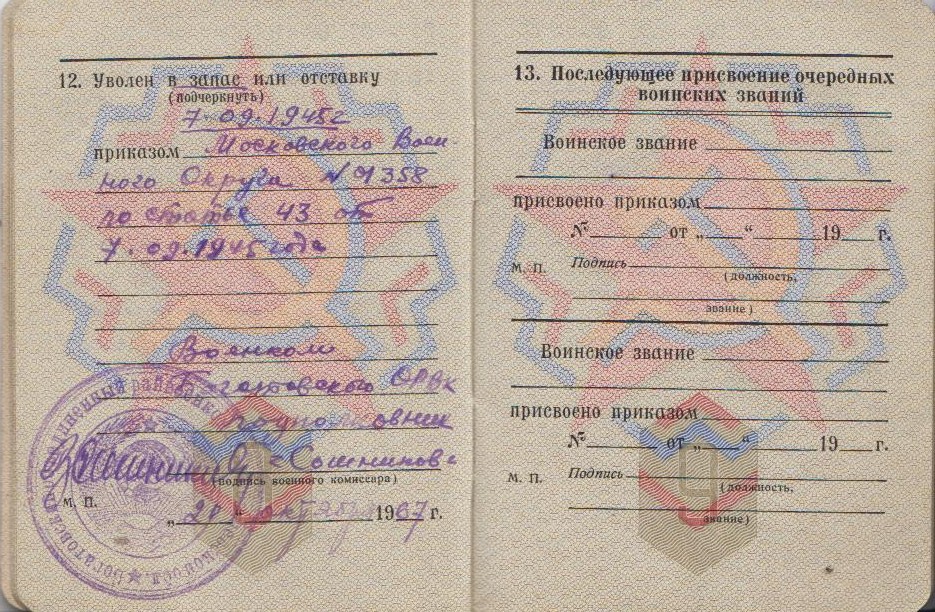 12. Уволен в запас или отставку
(подчеркнуть)
7.09.1945г
приказом Московского Воен-
ного Округа №01358
по статье 43 от
7.09.1945 года
Военком
Богатовского ОРВК
подполковник
Сошников
(подпись военного комиссара)
М. П.
„28“ октября 1967 г.
13. Последующее присвоение очередных
воинских званий
Воинское звание
присвоено приказом
№ от „ “ 19 г.
М. П. Подпись
(должность,
звание)
Воинское звание
присвоено приказом
№ от „ “ 19 г.
М. П. Подпись
(должность,
звание)